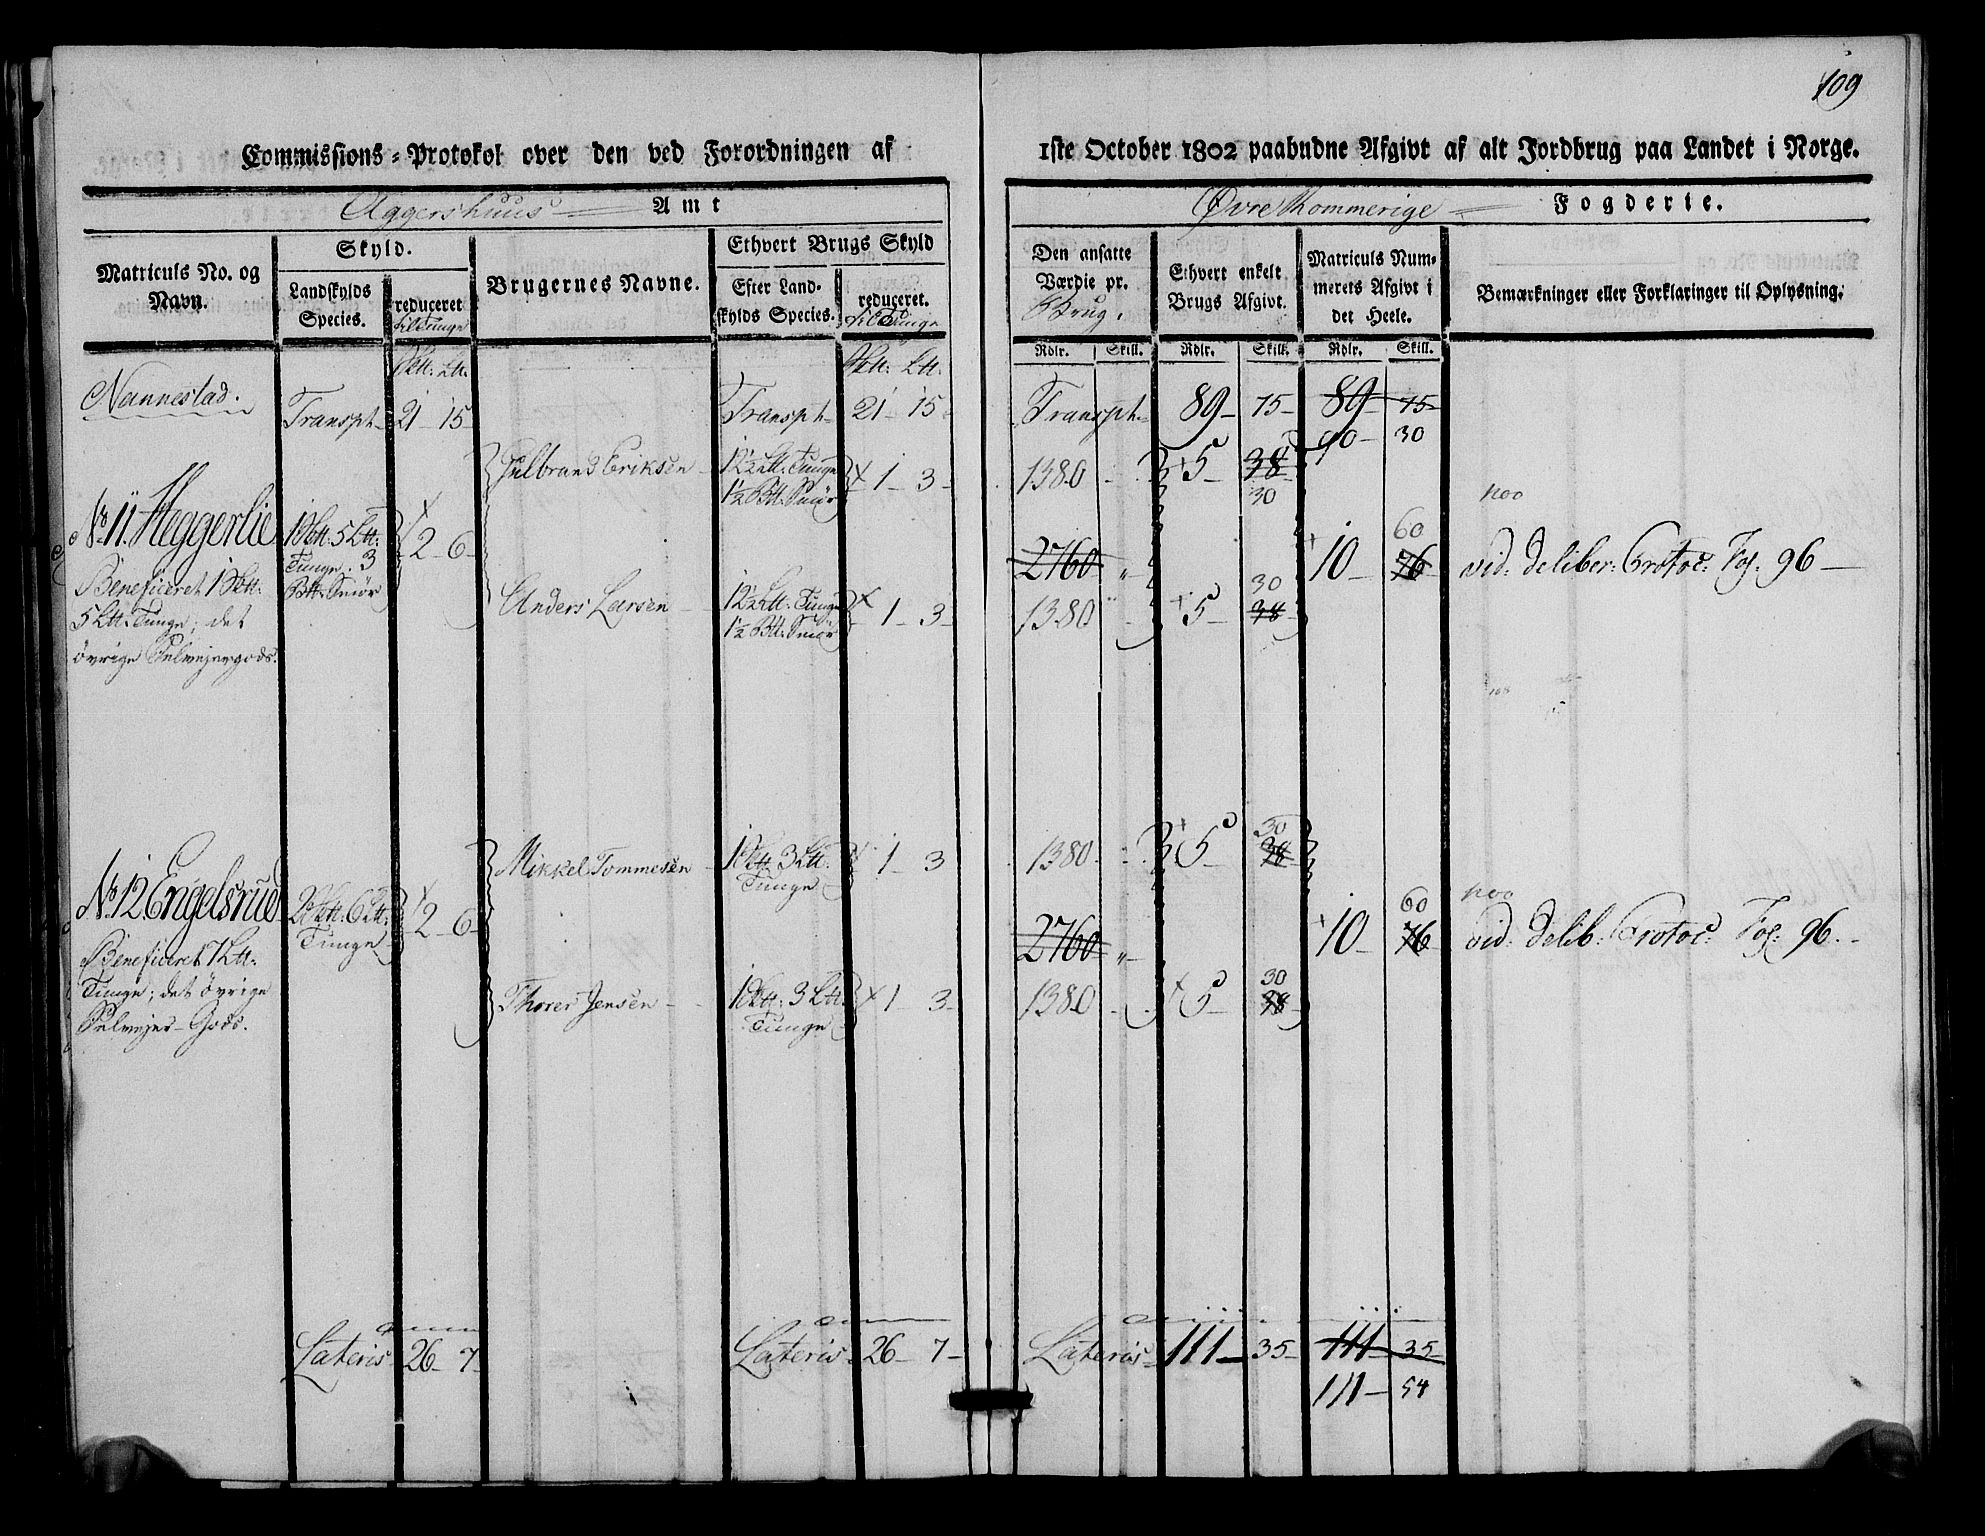 109
Commissions-Protokol over den ved Forordningen af 1ste October 1802 paabudne Afgivt af alt Jordbrug paa Landet i Norge.
Aggershuus Amt
Øvre Rommerige Fogderie.
Matriculs No. og Navn.
Skyld.
Landskylds Species.
reduceret til Tunge
Brugernes Navne.
Ethvert Brugs Skyld
Efter Landskylds Species.
reduceret. til Tunge
Den ansatte Værdie pr. Brug.
Ethvert enkelt Brugs Afgivt.
Matriculs Nummerets Afgivt i det Heele.
Bemærkninger eller Forklaringer til Oplysning.
Rdlr. Skill. Rdlr. Skill. Rdlr. Skill.
Sktt: Ltt. Sktt: Ltt.
Nannestad. Transpt 21 15 Transpt 21 15 Transpt 89 75 89 75
90 30
Gulbrand Eriksen 12½ Ltt. Tunge 1½ Btt. Smör 1 3 1380 5 38
30
No. 11. Heggerlie 1 Sktt. 5 Ltt. Tunge. 3 Btt. Smör 2 6 2760 " 10 76 vid: deliber: Protoc: Fol: 96
60
Beneficeret 1 Sktt.
5 Ltt. Tunge; det
övrige Selvejergods.
Anders Larsen 12½ Ltt. Tunge 1½ Btt. Smör 1 3 1380 5 38
30
Mikkel Tommesen 1 Sktt. 3 Ltt. Tunge 1 3 1380 5 38
30
No. 12. Engelsrud 2 Sktt. 6 Ltt. Tunge 2 6 2760 " 10 76 vid: delib: Protoc: Fol: 96.
60
Beneficeret 1 Ltt.
Tunge; det övrige
Selvejer-Gods.
Thorer Jensen 1 Sktt. 3 Ltt. Tunge 1 3 1380 5 38
30
Lateris 26 7 Lateris 26 7 Lateris 111 35 111 35
111 54